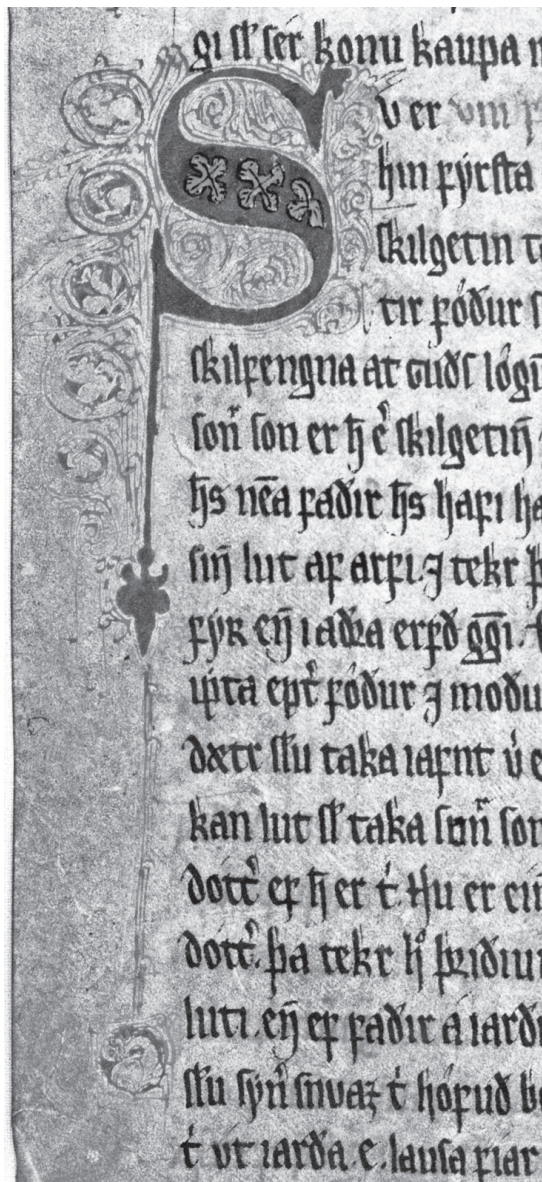 gi sl̃ ser konu kaupa
S
v er vm
hin fyrsta
skilgetin
tir fỏdur
skilfengna at guds lỏgū
son̄ son er h̄ e͛ skilgetin̄
h̄s nēa fadir h̄s hafi
sin̄ lut af arfi. ⁊ tekr
fyR en̄ i adꝛa erfd ḡgi.
ipta ept͛ fỏdur ⁊ modu
dætr sl̃u taka iafnt v͛
kan lut sl̃ taka son̄ son
dott͛ ef h̄ er t͛ þu er
dott͛. þa tekr h̊ þꝛidiun
luti. en̄ ef fadir a iardir
sl̃u syn̄ snuaz t͛ hỏfud
t͛ vt iarda. e. lausa fiar